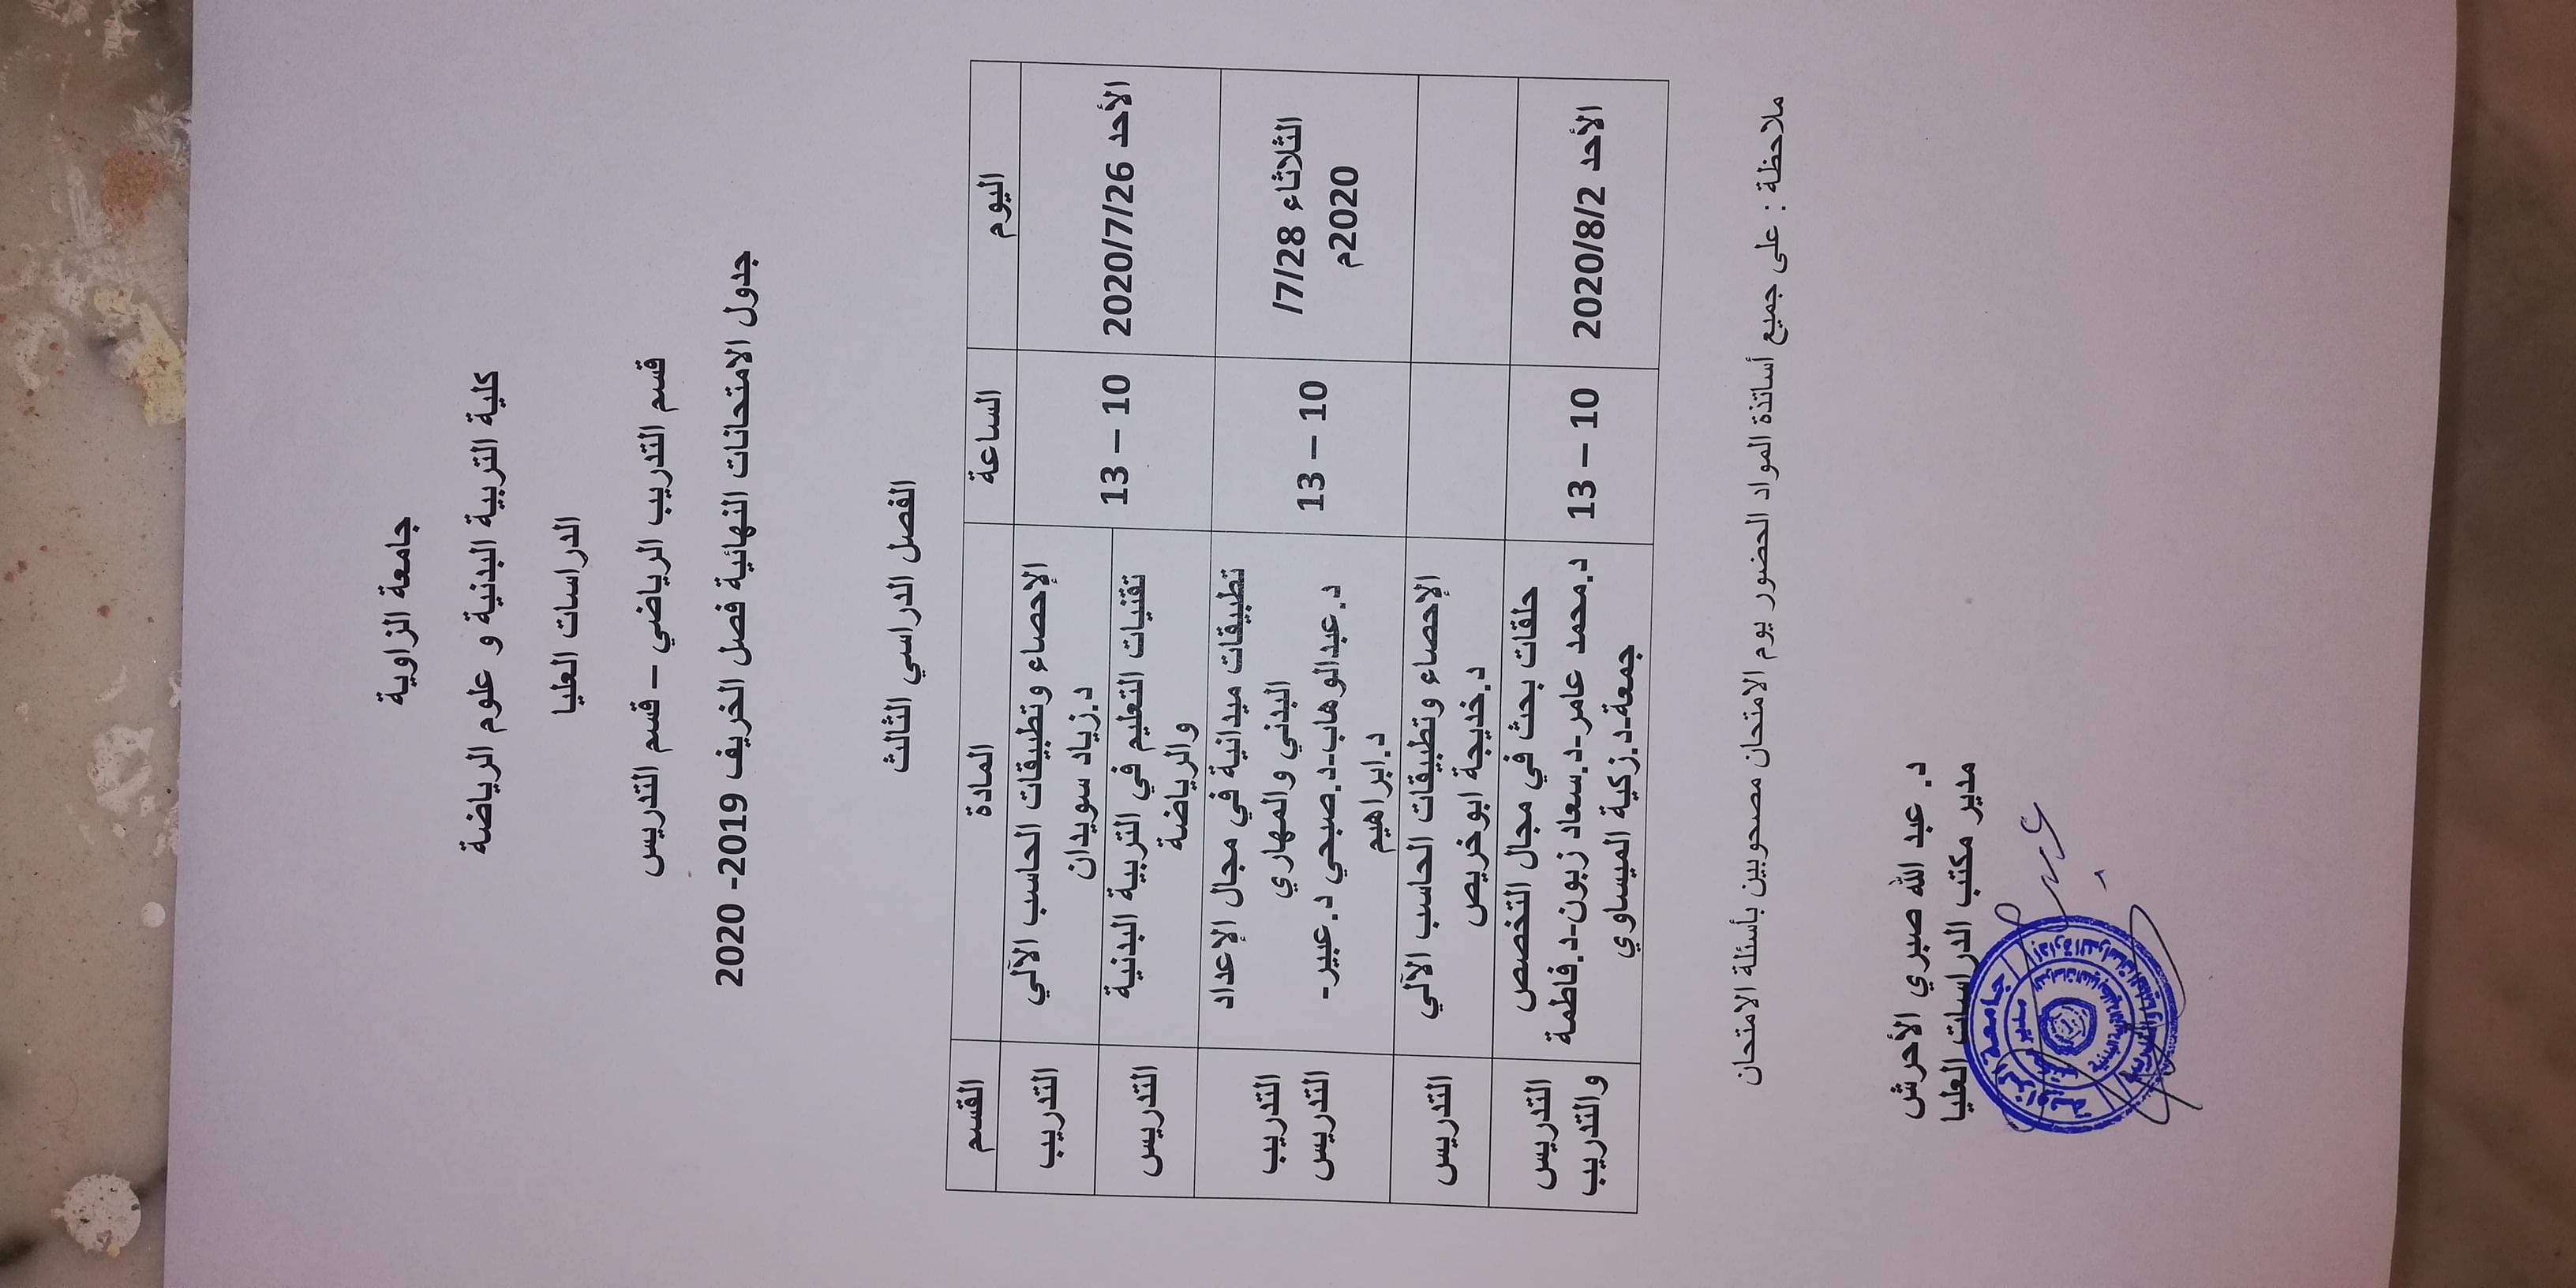 جامعة الزاوية
كلية التربية البدنية و علوم الرياضة
الدراسات العليا
قسم التدريب الرياضي – قسم التدريس
جدول الامتحانات النهائية فصل الخريف 2019- 2020
الفصل الدراسي الثالث
اليوم الساعة المادة القسم
الأحد 2020/7/26 10 – 13 الإحصاء وتطبيقات الحاسب الآلي التدريب
د.زياد سويدان
تقنيات التعليم في التربية البدنية التدريس
والرياضة
الثلاثاء 7/28/ 10 – 13 تطبيقات ميدانية في مجال الإعداد التدريب
2020م البدني والمهاري التدريس
د.عبدالوهاب-د.صبحي د.عبير-
د.ابراهيم
الإحصاء وتطبيقات الحاسب الآلي التدريس
د.خديجة ابوخريص
الأحد 2020/8/2 10 – 13 حلقات بحث في مجال التخصص التدريس
د.محمد عامر-د.سعاد زبون-د.فاطمة والتدريب
جمعة-د.زكية الميساوي
ملاحظة : على جميع أساتذة المواد الحضور يوم الامتحان مصحوبين بأسئلة الامتحان
د. عبد الله صبري الأحرش
مدير مكتب الدراسات العليا
جامعة الزاوية